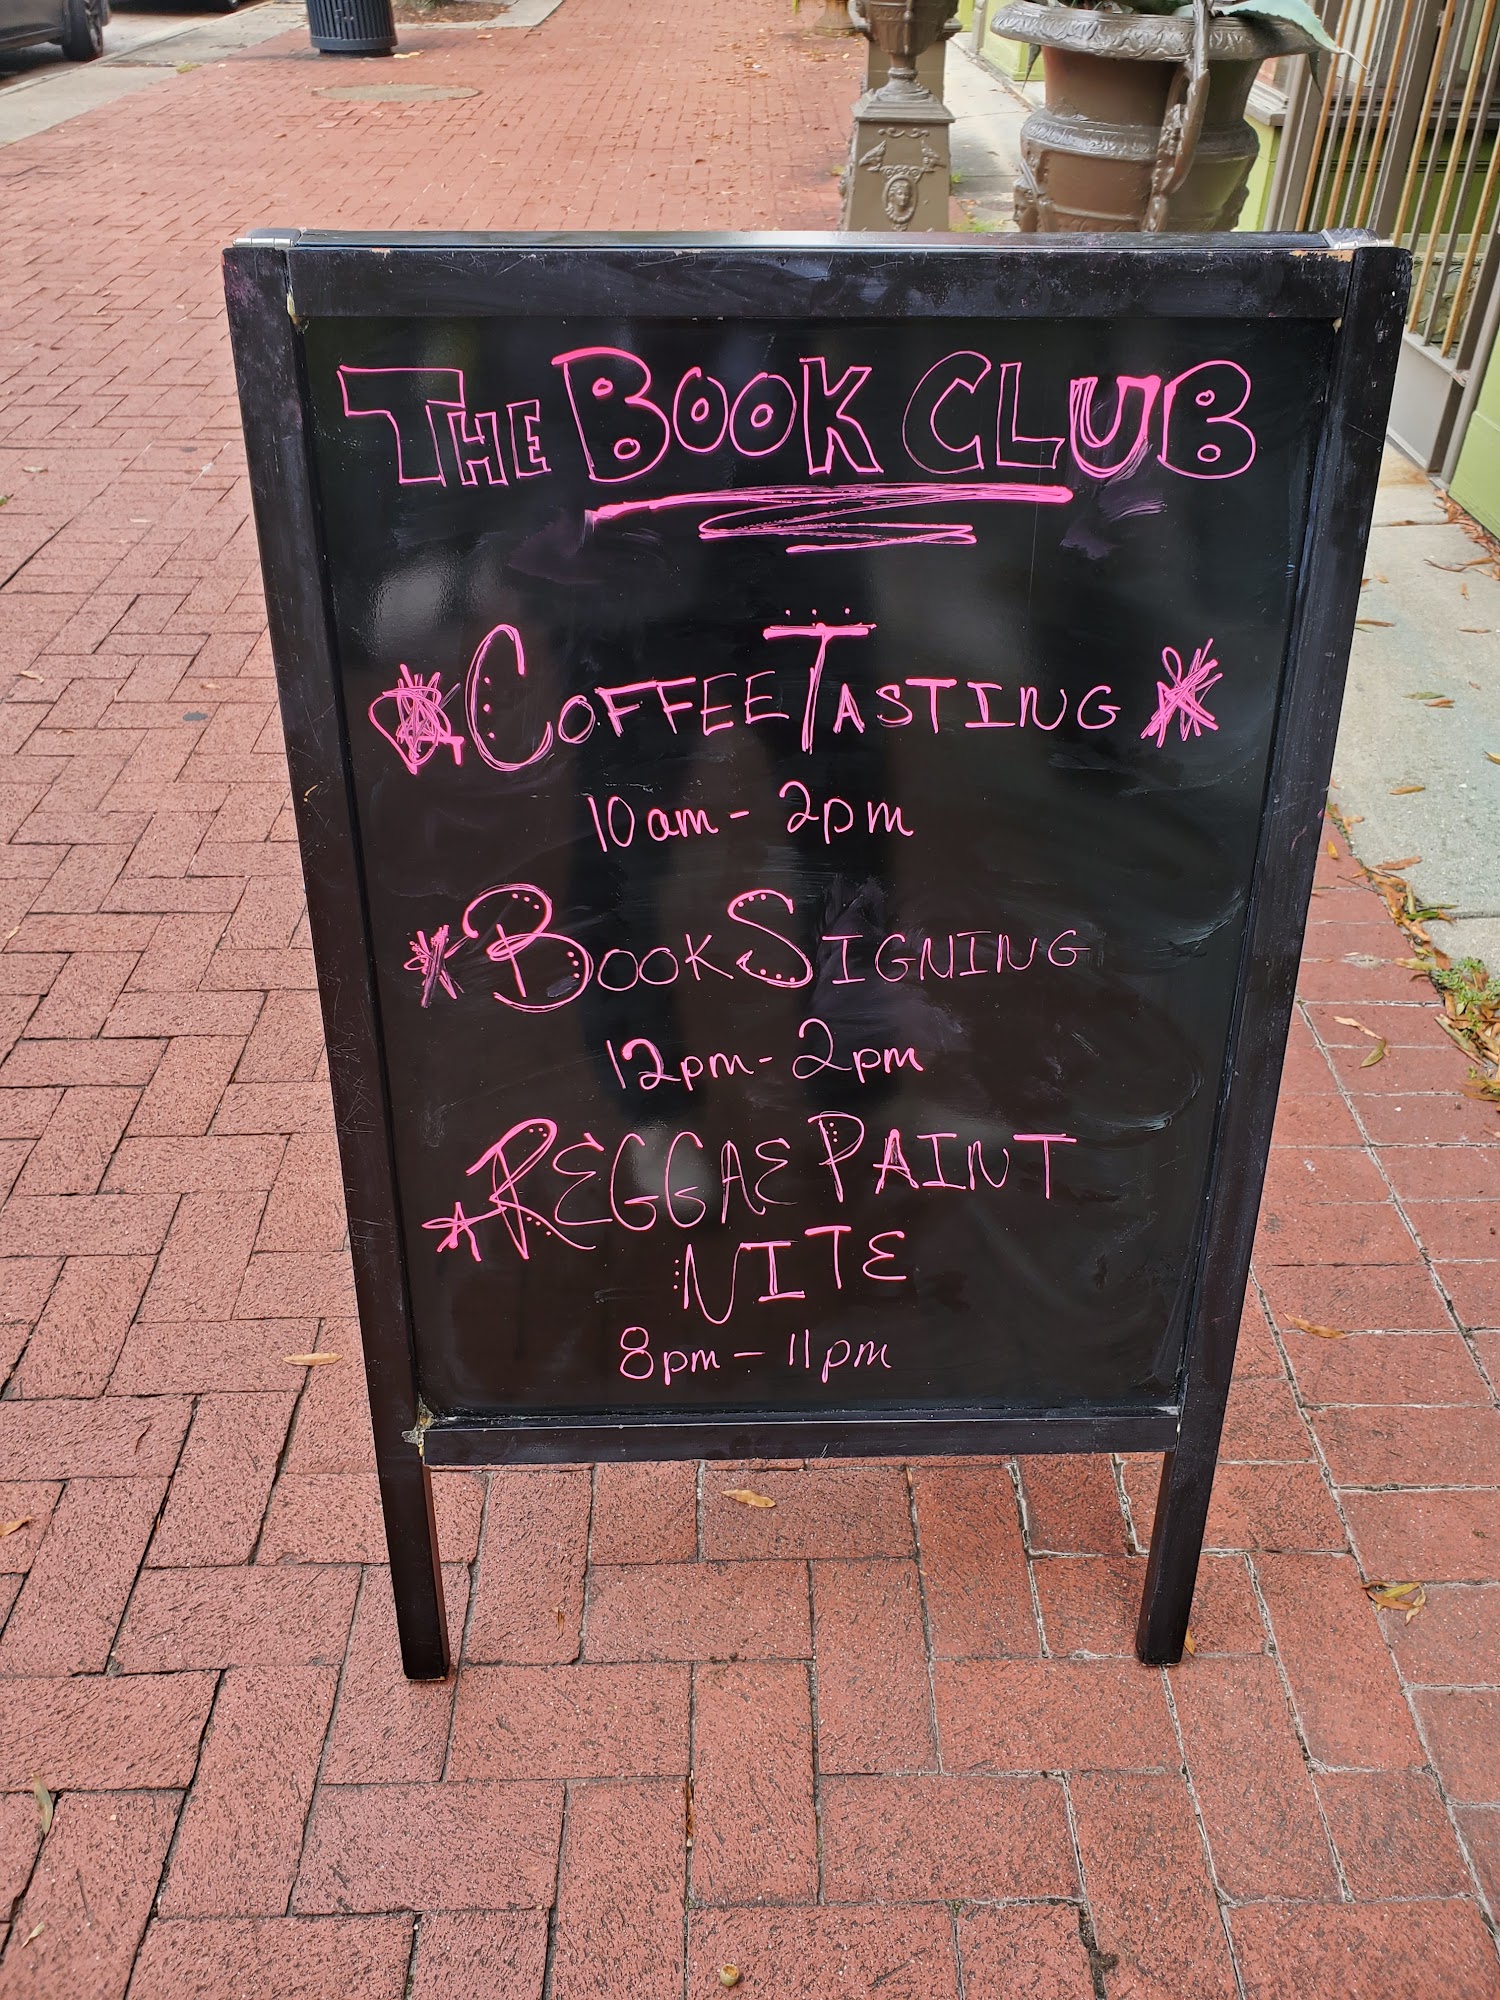 THE BOOK CLUB
COFFEE TASTING
10am - 2pm
BOOK SIGNING
12pm - 2pm
REGGAE PAINT
NITE
8pm - 11pm